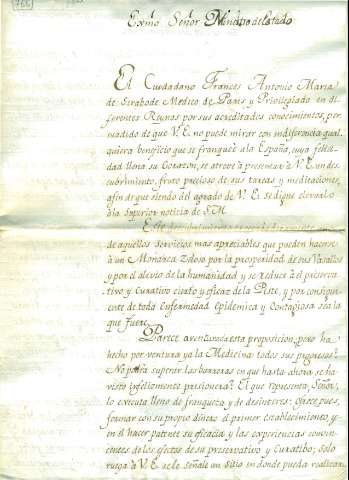 Exmo Señor Ministro de Estado
El Ciudadano Frances Antonio Maria
de Strabode Medico de Paris y Privilegiado en di-
ferentes Reynos por sus acreditados conocimientos, per-
suadido de que V. E. no puede mirar con indiferencia qual-
quiera beneficio que se franqueè a la España, cuya felici-
dad llena su Corazon, se atreve à presentar à V. E. un des-
cubrimiento, fruto precioso de sus tareas y meditaciones,
afin de que siendo del agrado de V. E. se digne elevarlo
à la Superior noticia de S. M.
Este descubrimiento
de aquellos servicios mas apreciables que pueden hacerse
à un Monarca zeloso por la prosperidad de sus Vasallos
y por el alivio de la humanidad y se reduce à el preserva-
tivo y Curativo cierto y eficaz de la Peste, y por consiguien-
te de toda Enfermedad Epidemica y Contagiosa sea la
que fuere.
Parece aventurada esta proposicion, pero ha
hecho por ventura ya la Medicina todos sus progresos?
No podrà superar las barreras en que hasta ahora se ha
visto infelizmente prisionera? El que representa, Señor,
lo executa lleno de franqueza y de desinteres: ofrece pues,
formar con su propio dinero el primer establecimiento, y
en èl hacer patente su eficacia y las experiencias conven-
centes de los efectos de su preservativo y Curatibo; solo
ruega à V. E. se le señale un sitio en donde pueda realizar